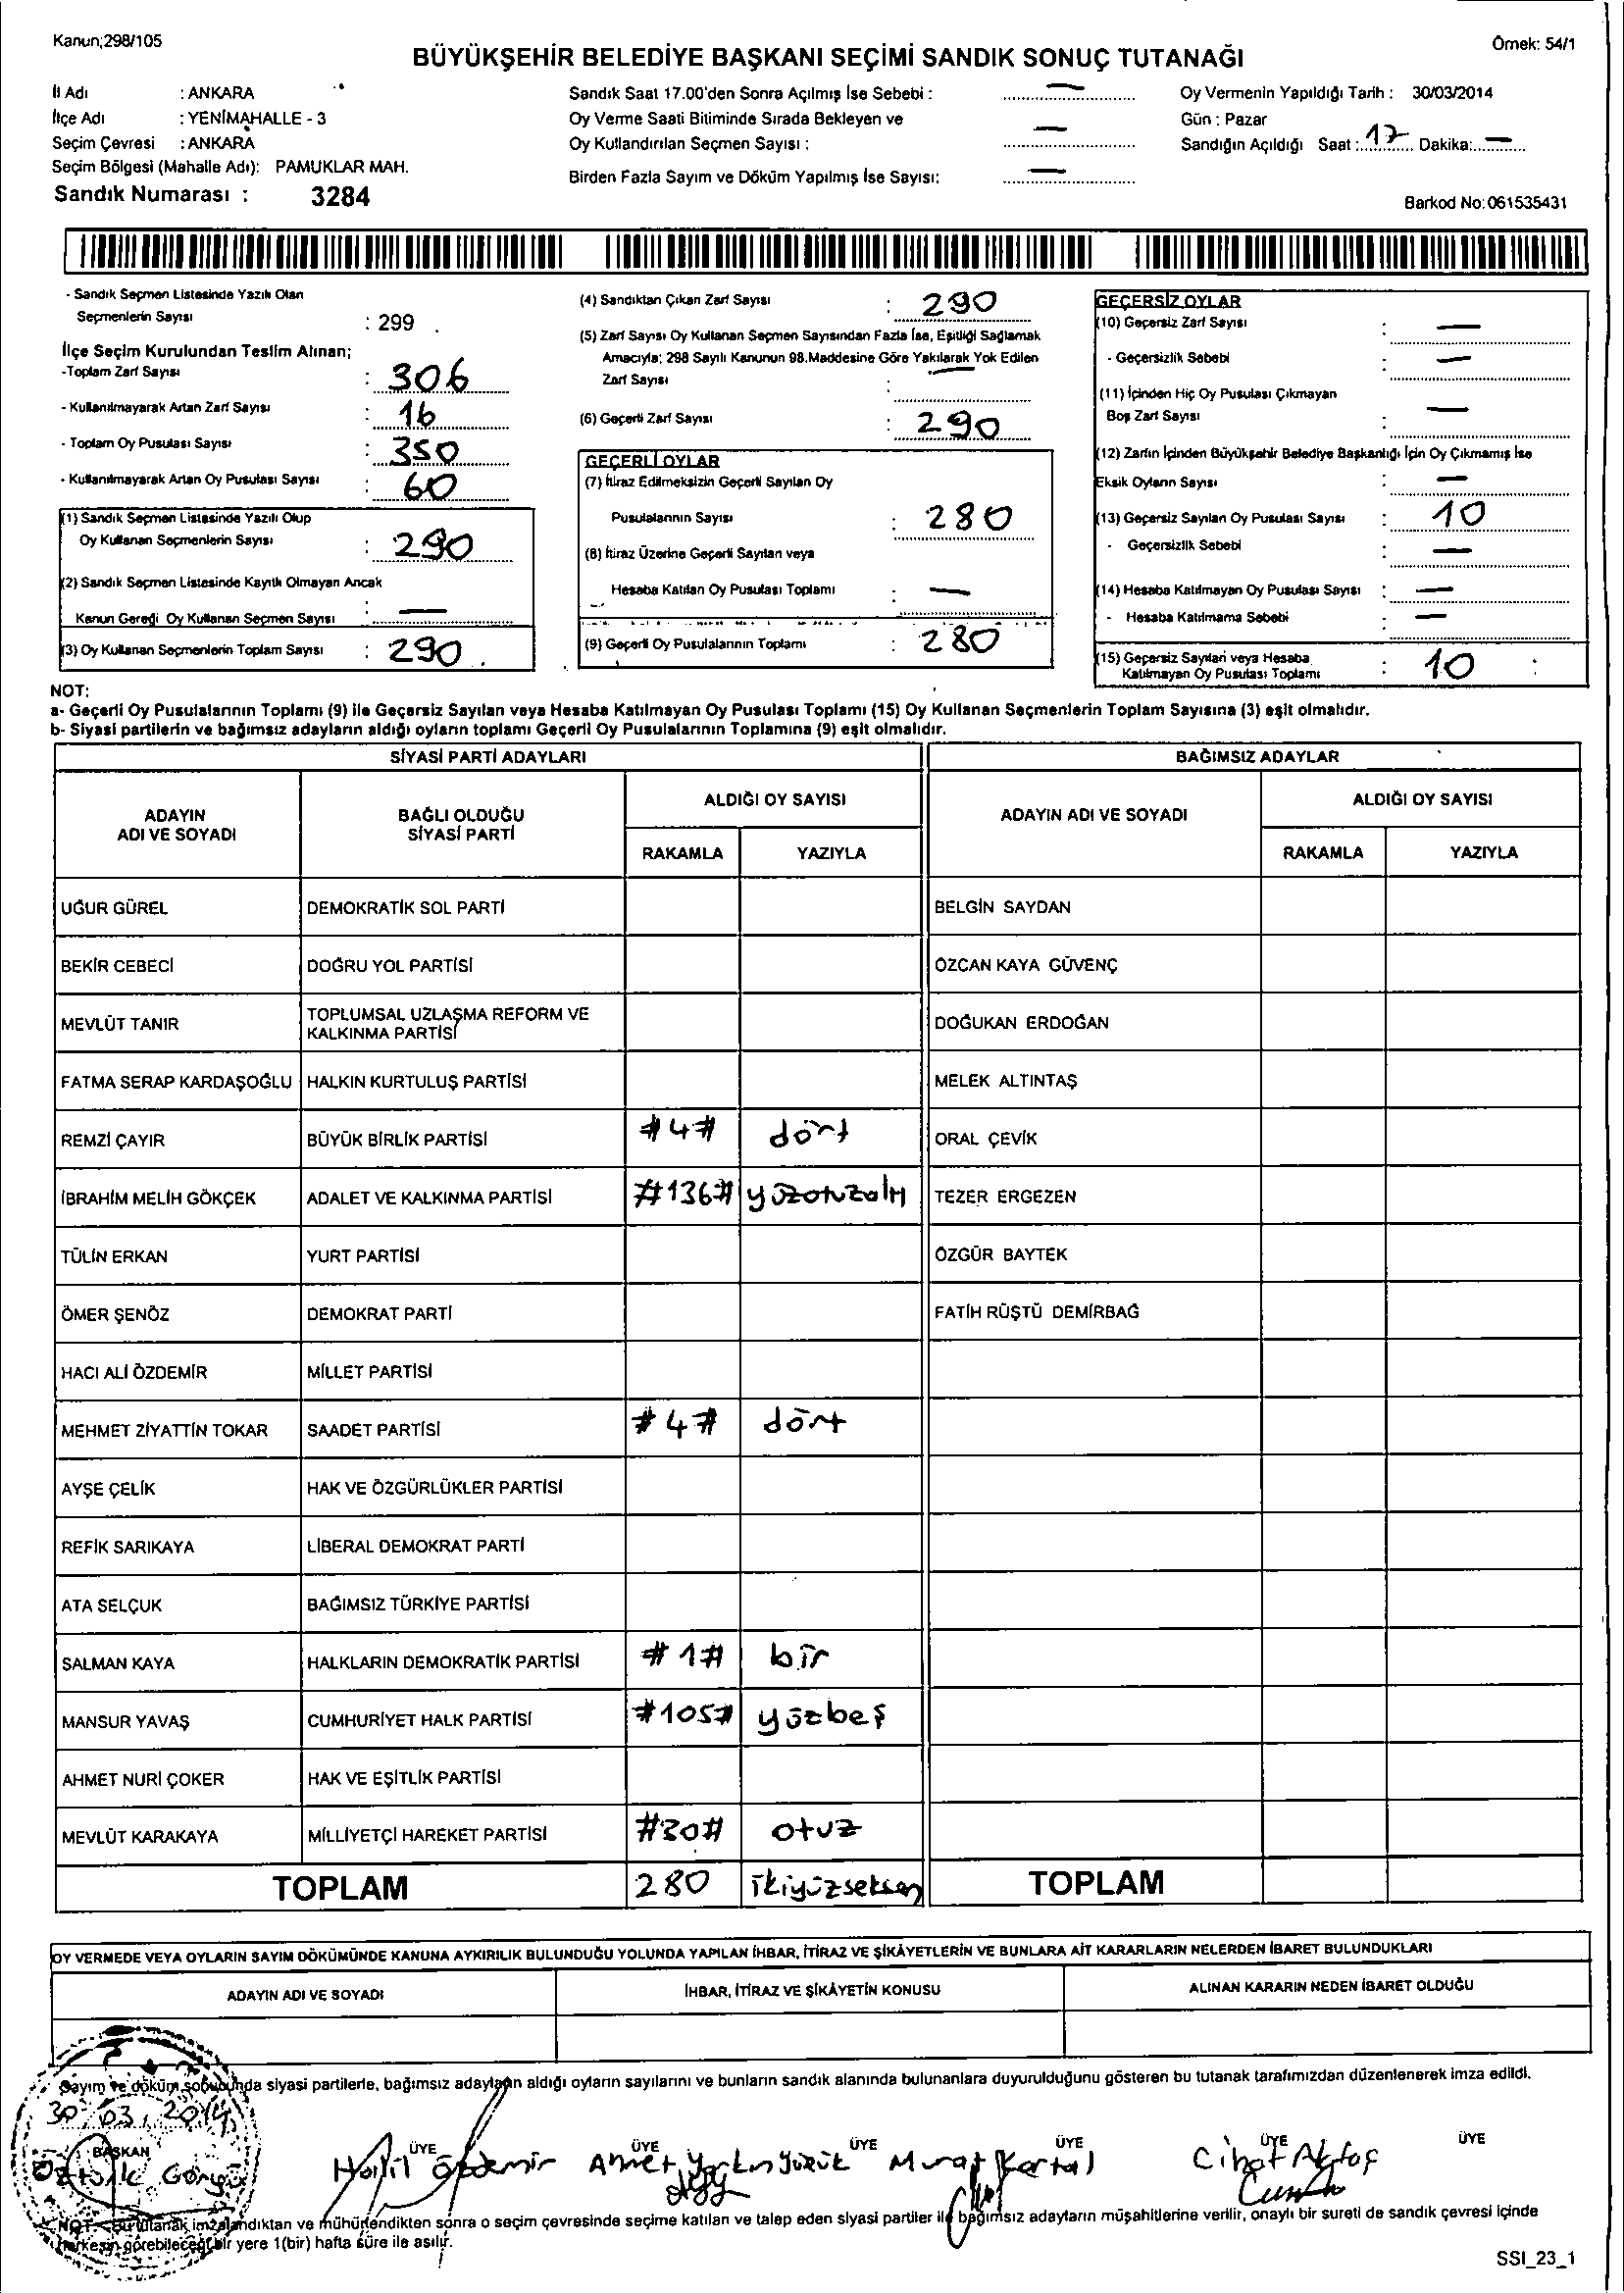 Kanun;298/105
Örnek: 54/1
BÜYÜKŞEHİR BELEDİYE BAŞKANI SEÇİMİ SANDIK SONUÇ TUTANAĞI
İl Adı : ANKARA
İlçe Adı : YENİMAHALLE - 3
Seçim Çevresi : ANKARA
Seçim Bölgesi (Mahalle Adı): PAMUKLAR MAH.
Sandık Numarası : 3284
Sandık Saat 17.00'den Sonra Açılmış İse Sebebi : —
Oy Verme Saati Bitiminde Sırada Bekleyen ve
Oy Kullandırılan Seçmen Sayısı : —
Birden Fazla Sayım ve Döküm Yapılmış İse Sayısı: —
Oy Vermenin Yapıldığı Tarih : 30/03/2014
Gün : Pazar
Sandığın Açıldığı Saat : 17 Dakika: —
Barkod No: 061535431
- Sandık Seçmen Listesinde Yazılı Olan
Seçmenlerin Sayısı : 299
İlçe Seçim Kurulundan Teslim Alınan;
-Toplam Zarf Sayısı : 306
- Kullanılmayarak Artan Zarf Sayısı : 16
- Toplam Oy Pusulası Sayısı : 350
- Kullanılmayarak Artan Oy Pusulası Sayısı : 60
(1) Sandık Seçmen Listesinde Yazılı Olup
Oy Kullanan Seçmenlerin Sayısı : 290
(2) Sandık Seçmen Listesinde Kayıtlı Olmayan Ancak
Kanun Gereği Oy Kullanan Seçmen Sayısı : —
(3) Oy Kullanan Seçmenlerin Toplam Sayısı : 290
(4) Sandıktan Çıkan Zarf Sayısı : 290
(5) Zarf Sayısı Oy Kullanan Seçmen Sayısından Fazla İse, Eşitliği Sağlamak
Amacıyla; 298 Sayılı Kanunun 98.Maddesine Göre Yakılarak Yok Edilen
Zarf Sayısı : —
(6) Geçerli Zarf Sayısı : 290
GEÇERLİ OYLAR
(7) İtiraz Edilmeksizin Geçerli Sayılan Oy
Pusulalarının Sayısı : 280
(8) İtiraz Üzerine Geçerli Sayılan veya
Hesaba Katılan Oy Pusulası Toplamı : —
(9) Geçerli Oy Pusulalarının Toplamı : 280
GEÇERSİZ OYLAR
(10) Geçersiz Zarf Sayısı : —
- Geçersizlik Sebebi : —
(11) İçinden Hiç Oy Pusulası Çıkmayan
Boş Zarf Sayısı : —
(12) Zarfın İçinden Büyükşehir Belediye Başkanlığı İçin Oy Çıkmamış İse
Eksik Oyların Sayısı : —
(13) Geçersiz Sayılan Oy Pusulası Sayısı : 10
- Geçersizlik Sebebi : —
(14) Hesaba Katılmayan Oy Pusulası Sayısı : —
- Hesaba Katılmama Sebebi : —
(15) Geçersiz Sayılan veya Hesaba
Katılmayan Oy Pusulası Toplamı : 10
NOT:
a- Geçerli Oy Pusulalarının Toplamı (9) ile Geçersiz Sayılan veya Hesaba Katılmayan Oy Pusulası Toplamı (15) Oy Kullanan Seçmenlerin Toplam Sayısına (3) eşit olmalıdır.
b- Siyasi partilerin ve bağımsız adayların aldığı oyların toplamı Geçerli Oy Pusulalarının Toplamına (9) eşit olmalıdır.
SİYASİ PARTİ ADAYLARI
BAĞIMSIZ ADAYLAR
ADAYIN ADI VE SOYADI
BAĞLI OLDUĞU SİYASİ PARTİ
ALDIĞI OY SAYISI
RAKAMLA YAZIYLA
ADAYIN ADI VE SOYADI
ALDIĞI OY SAYISI
RAKAMLA YAZIYLA
UĞUR GÜREL DEMOKRATİK SOL PARTİ BELGİN SAYDAN
BEKİR CEBECİ DOĞRU YOL PARTİSİ ÖZCAN KAYA GÜVENÇ
MEVLÜT TANIR TOPLUMSAL UZLAŞMA REFORM VE KALKINMA PARTİSİ DOĞUKAN ERDOĞAN
FATMA SERAP KARDAŞOĞLU HALKIN KURTULUŞ PARTİSİ MELEK ALTINTAŞ
REMZİ ÇAYIR BÜYÜK BİRLİK PARTİSİ #4# dört ORAL ÇEVİK
İBRAHİM MELİH GÖKÇEK ADALET VE KALKINMA PARTİSİ #136# yüzotuzaltı TEZER ERGEZEN
TÜLİN ERKAN YURT PARTİSİ ÖZGÜR BAYTEK
ÖMER ŞENÖZ DEMOKRAT PARTİ FATİH RÜŞTÜ DEMİRBAĞ
HACI ALİ ÖZDEMİR MİLLET PARTİSİ
MEHMET ZİYATTİN TOKAR SAADET PARTİSİ #4# dört
AYŞE ÇELİK HAK VE ÖZGÜRLÜKLER PARTİSİ
REFİK SARIKAYA LİBERAL DEMOKRAT PARTİ
ATA SELÇUK BAĞIMSIZ TÜRKİYE PARTİSİ
SALMAN KAYA HALKLARIN DEMOKRATİK PARTİSİ #1# bir
MANSUR YAVAŞ CUMHURİYET HALK PARTİSİ #105# yüzbeş
AHMET NURİ ÇOKER HAK VE EŞİTLİK PARTİSİ
MEVLÜT KARAKAYA MİLLİYETÇİ HAREKET PARTİSİ #30# otuz
TOPLAM 280 ikiyüzseksen TOPLAM
OY VERMEDE VEYA OYLARIN SAYIM DÖKÜMÜNDE KANUNA AYKIRILIK BULUNDUĞU YOLUNDA YAPILAN İHBAR, İTİRAZ VE ŞİKÂYETLERİN VE BUNLARA AİT KARARLARIN NELERDEN İBARET BULUNDUKLARI
ADAYIN ADI VE SOYADI İHBAR, İTİRAZ VE ŞİKÂYETİN KONUSU ALINAN KARARIN NEDEN İBARET OLDUĞU
Sayım ve döküm sonucunda siyasi partilerle, bağımsız adayların aldığı oyların sayılarını ve bunların sandık alanında bulunanlara duyurulduğunu gösteren bu tutanak tarafımızdan düzenlenerek imza edildi.
30/03/2014
BAŞKAN ÜYE ÜYE ÜYE ÜYE ÜYE ÜYE
Halil Özdemir Ahmet Murat Kartal Cihat Aktaş
NOT: Bu tutanak imzalandıktan ve mühürlendikten sonra o seçim çevresinde seçime katılan ve talep eden siyasi partiler ile bağımsız adayların müşahitlerine verilir, onaylı bir sureti de sandık çevresi içinde
herkesin görebileceği bir yere 1(bir) hafta süre ile asılır.
SSI_23_1